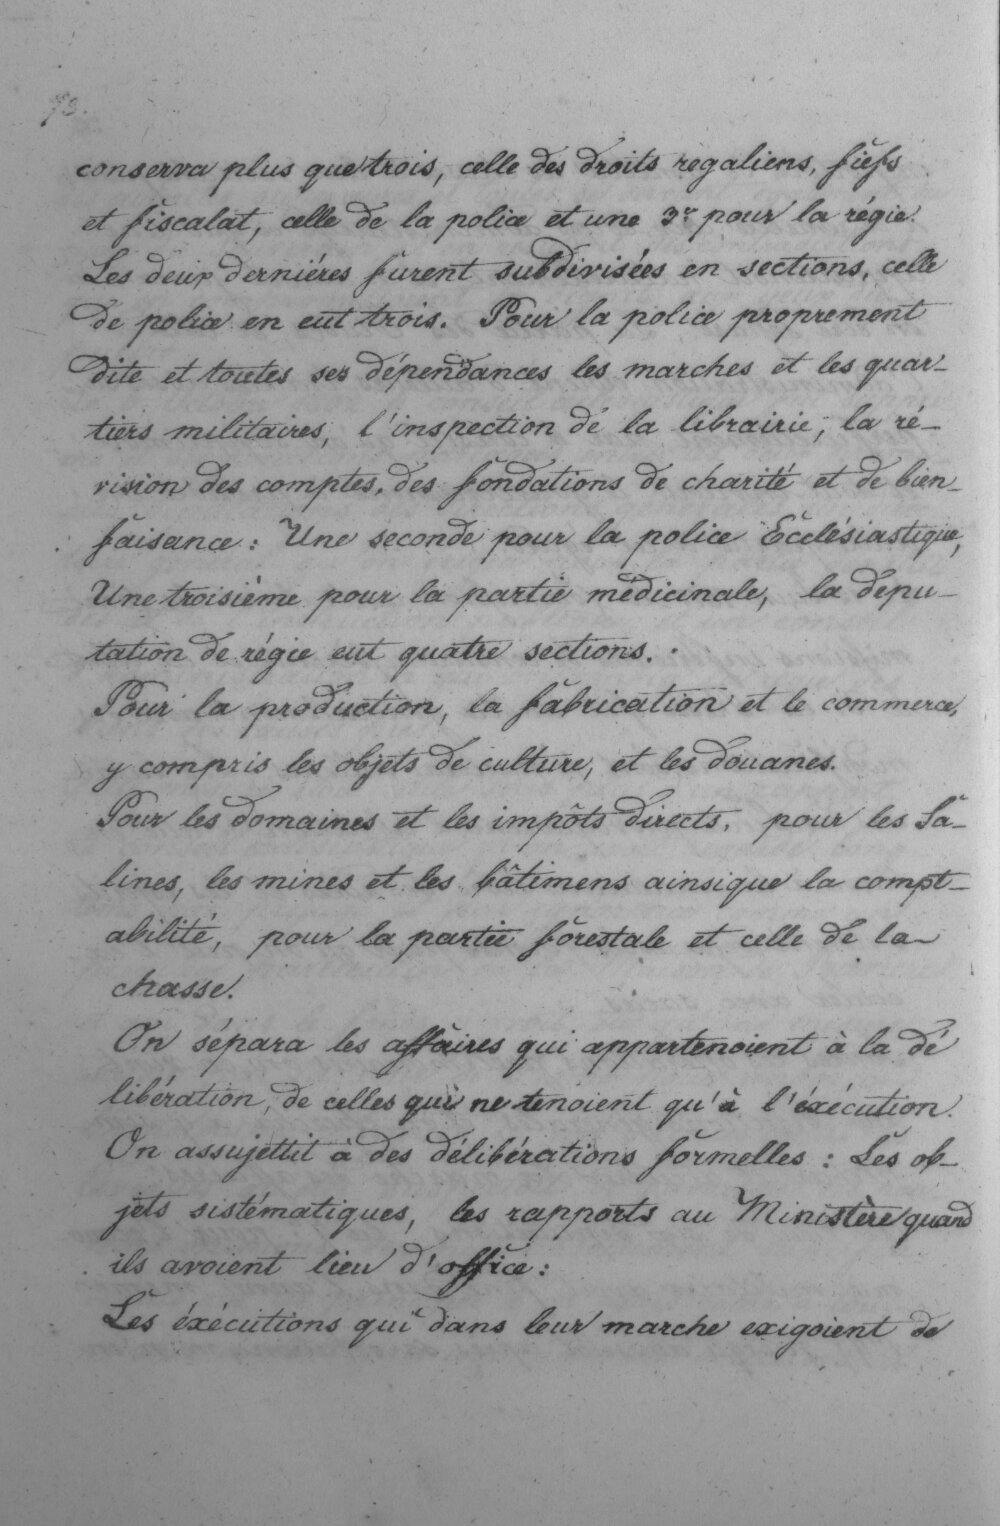 conserva plus que trois, celle des droits regaliens, fiefs
et fiscalat, celle de la police et une 3e pour la régie.
Les deux derniéres furent subdivisées en sections, celle
de police en eut trois. Pour la police proprement
dite et toutes ses dépendances les marches et les quar-
tiers militaires, l'inspection de la librairie, la ré-
vision des comptes, des fondations de charité et de bien-
faisance: Une seconde pour la police Ecclésiastique,
Une troisième pour la partie médicinale, la depu-
tation de régie eut quatre sections.
Pour la production, la fabrication et le commerce,
y compris les objets de culture, et les douanes.
Pour les domaines et les impôts directs, pour les Sa-
lines, les mines et les bâtimens ainsique la compt-
abilité, pour la partie forestale et celle de la
chasse.
On sépara les affaires qui appartenoient à la dé
libération, de celles qui ne tenoient qu'à l'éxécution.
On assujettit à des délibérations formelles: Les ob-
jets sistématiques, les rapports au Ministère quand
ils avoient lieu d'office:
Les éxécutions qui dans leur marche exigoient de